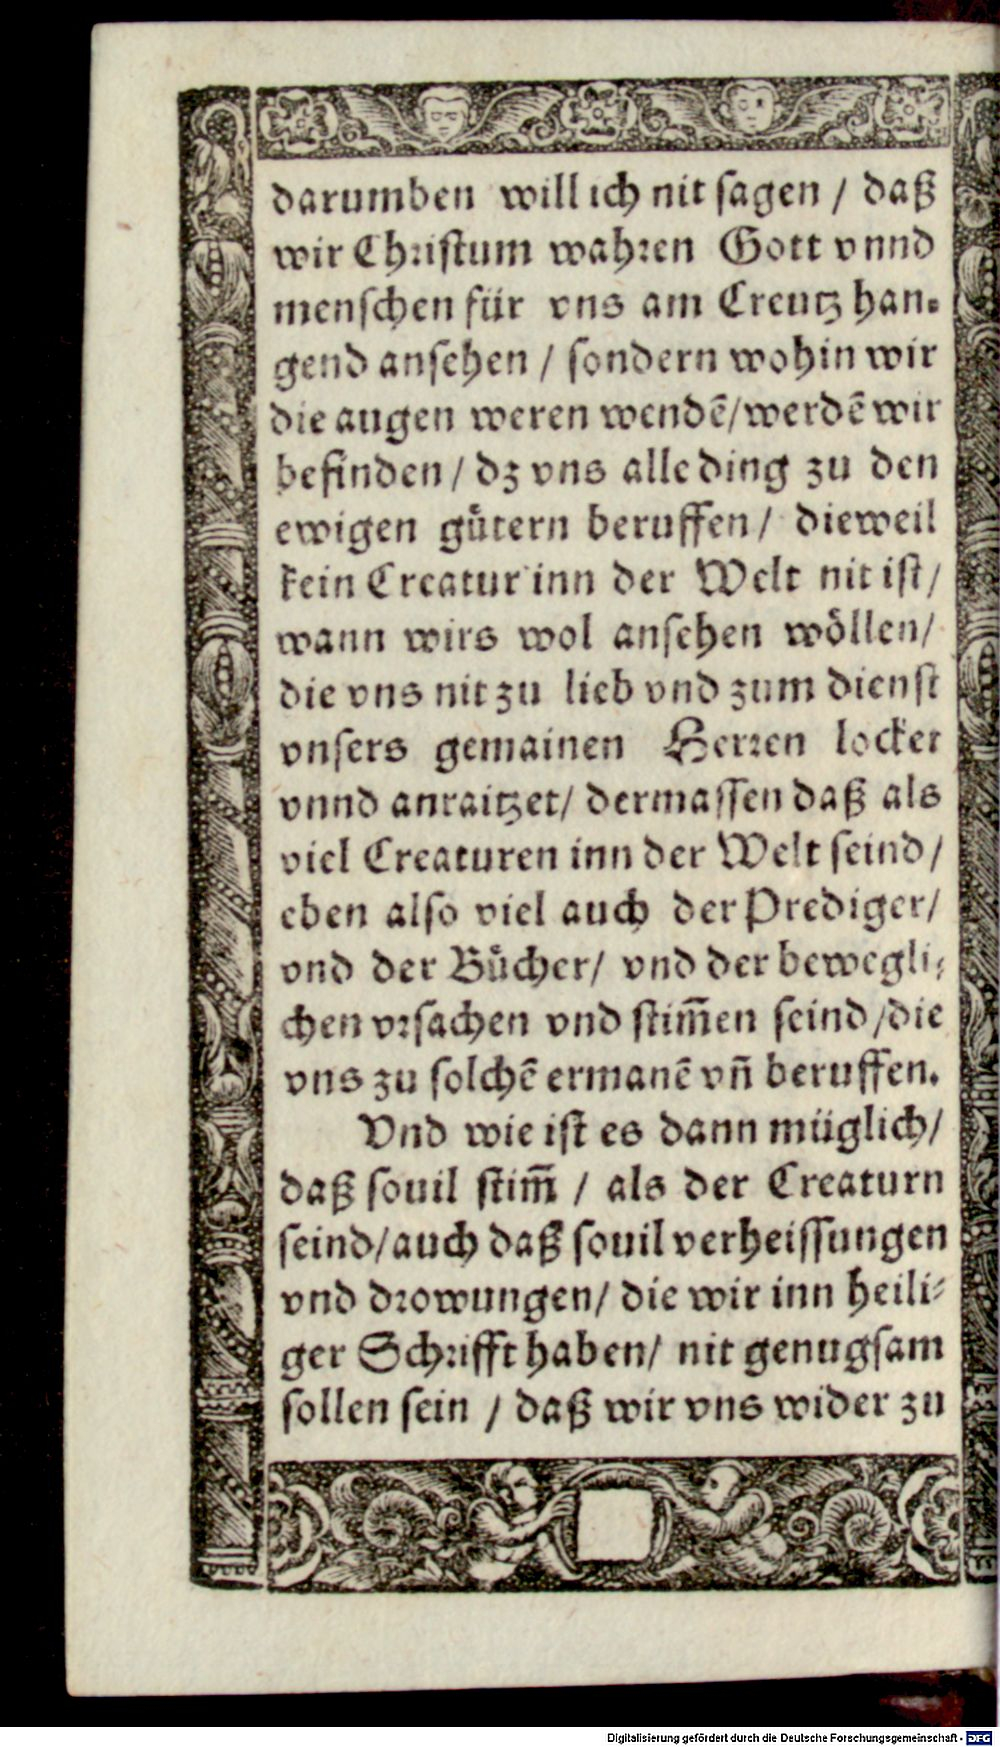 darumben will ich nit sagen / daß
wir Christum wahren Gott vnnd
menschen für vns am Creutz han-
gend ansehen / sondern wohin wir
die augen weren wendẽ/werdẽ wir
befinden / dz vns alle ding zu den
ewigen gütern beruffen/ dieweil
kein Creatur inn der Welt nit ist/
wann wirs wol ansehen wöllen/
die vns nit zu lieb vnd zum dienst
vnsers gemainen Herren locket
vnnd anraitzet/ dermassen daß als
viel Creaturen inn der Welt seind/
eben also viel auch der Prediger/
vnd der Bücher/ vnd der bewegli-
chen vrsachen vnd stim̃en seind /die
vns zu solchẽ ermanẽ vñ beruffen.
Vnd wie ist es dann müglich/
daß souil stim̃ / als der Creaturn
seind/auch daß souil verheissungen
vnd drowungen/ die wir inn heili-
ger Schrifft haben/ nit genugsam
sollen sein / daß wir vns wider zu
Digitalisierung gefördert durch die Deutsche Forschungsgemeinschaft - DFG